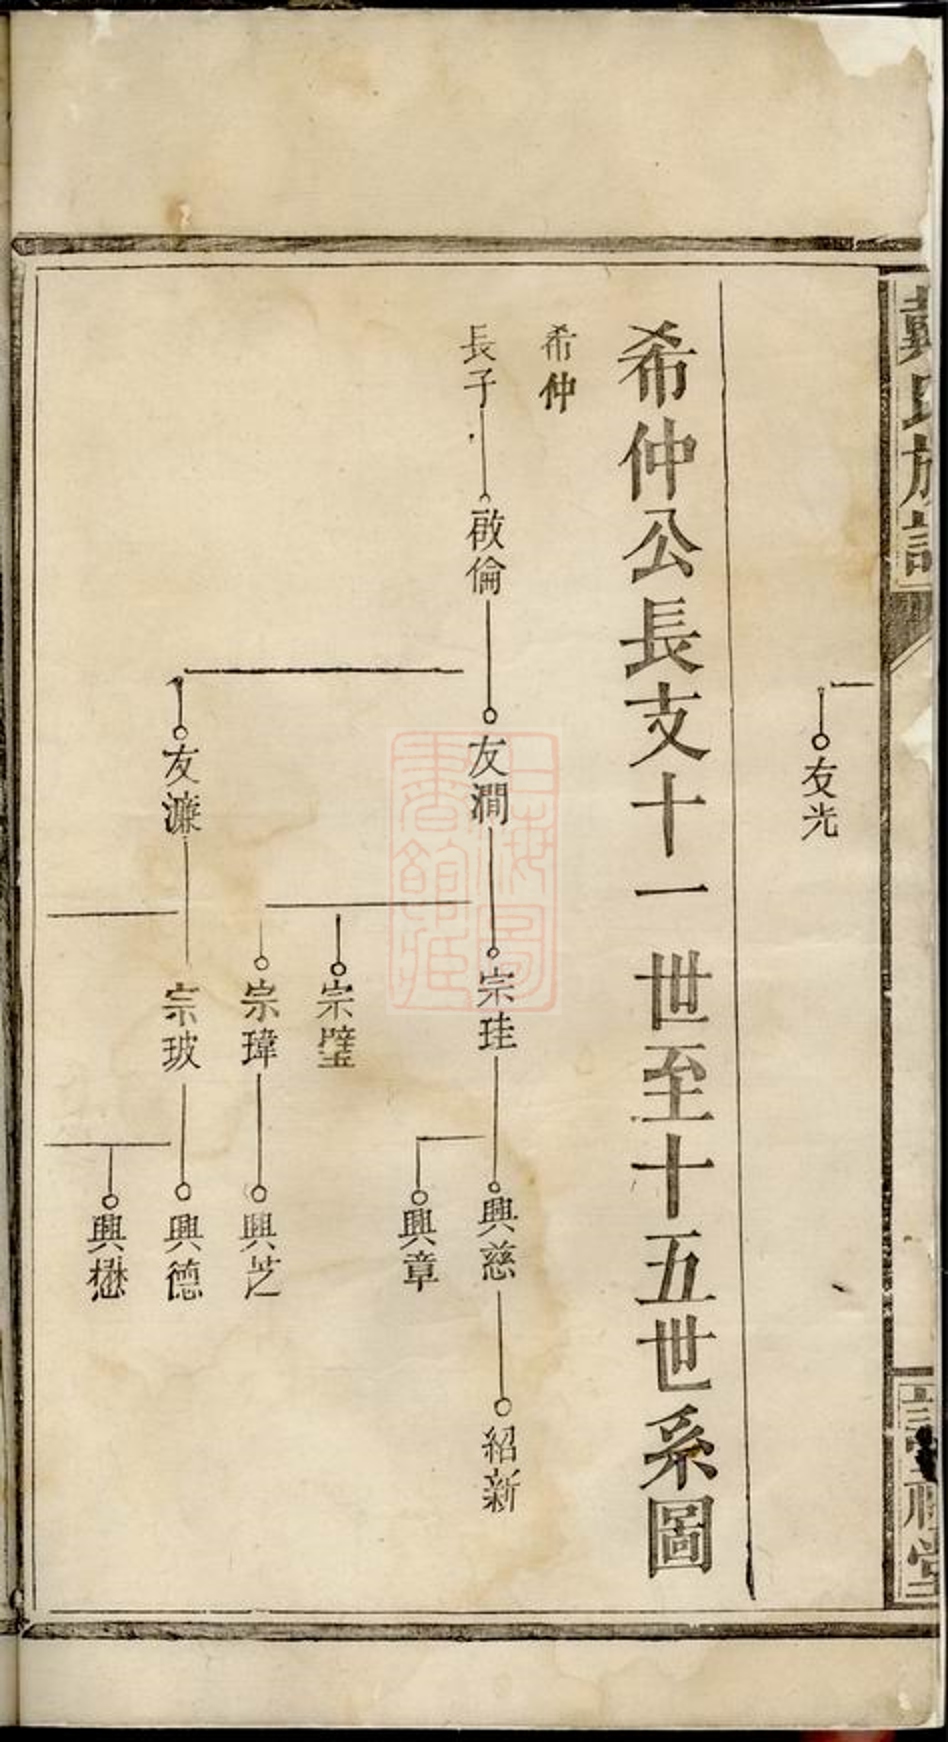 戴氏族譜
友光
希仲公長支十一世至十五世系圖
希仲
長子
啟倫
友澗
友濂
宗珪
宗璧
宗瑋
宗玻
興慈
興章
興芝
興德
興懋
紹新
上海圖書館藏